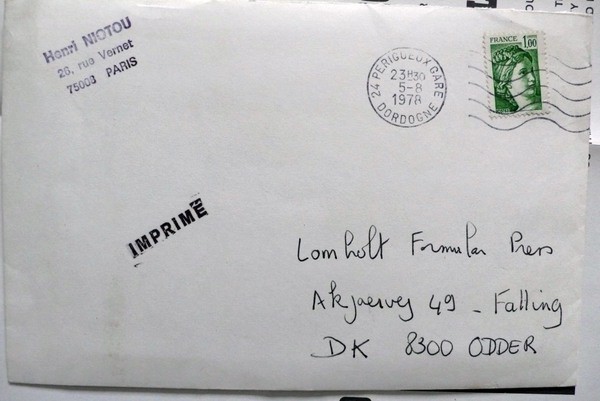 Henri NIOTOU
26, rue Vernet
75008 PARIS
24 PERIGUEUX GARE
23H30
5-8
1978
DORDOGNE
FRANCE 1,00
IMPRIMÉ
Lomholt Formular Press
Akjaervej 49 - Falling
DK 8300 ODDER